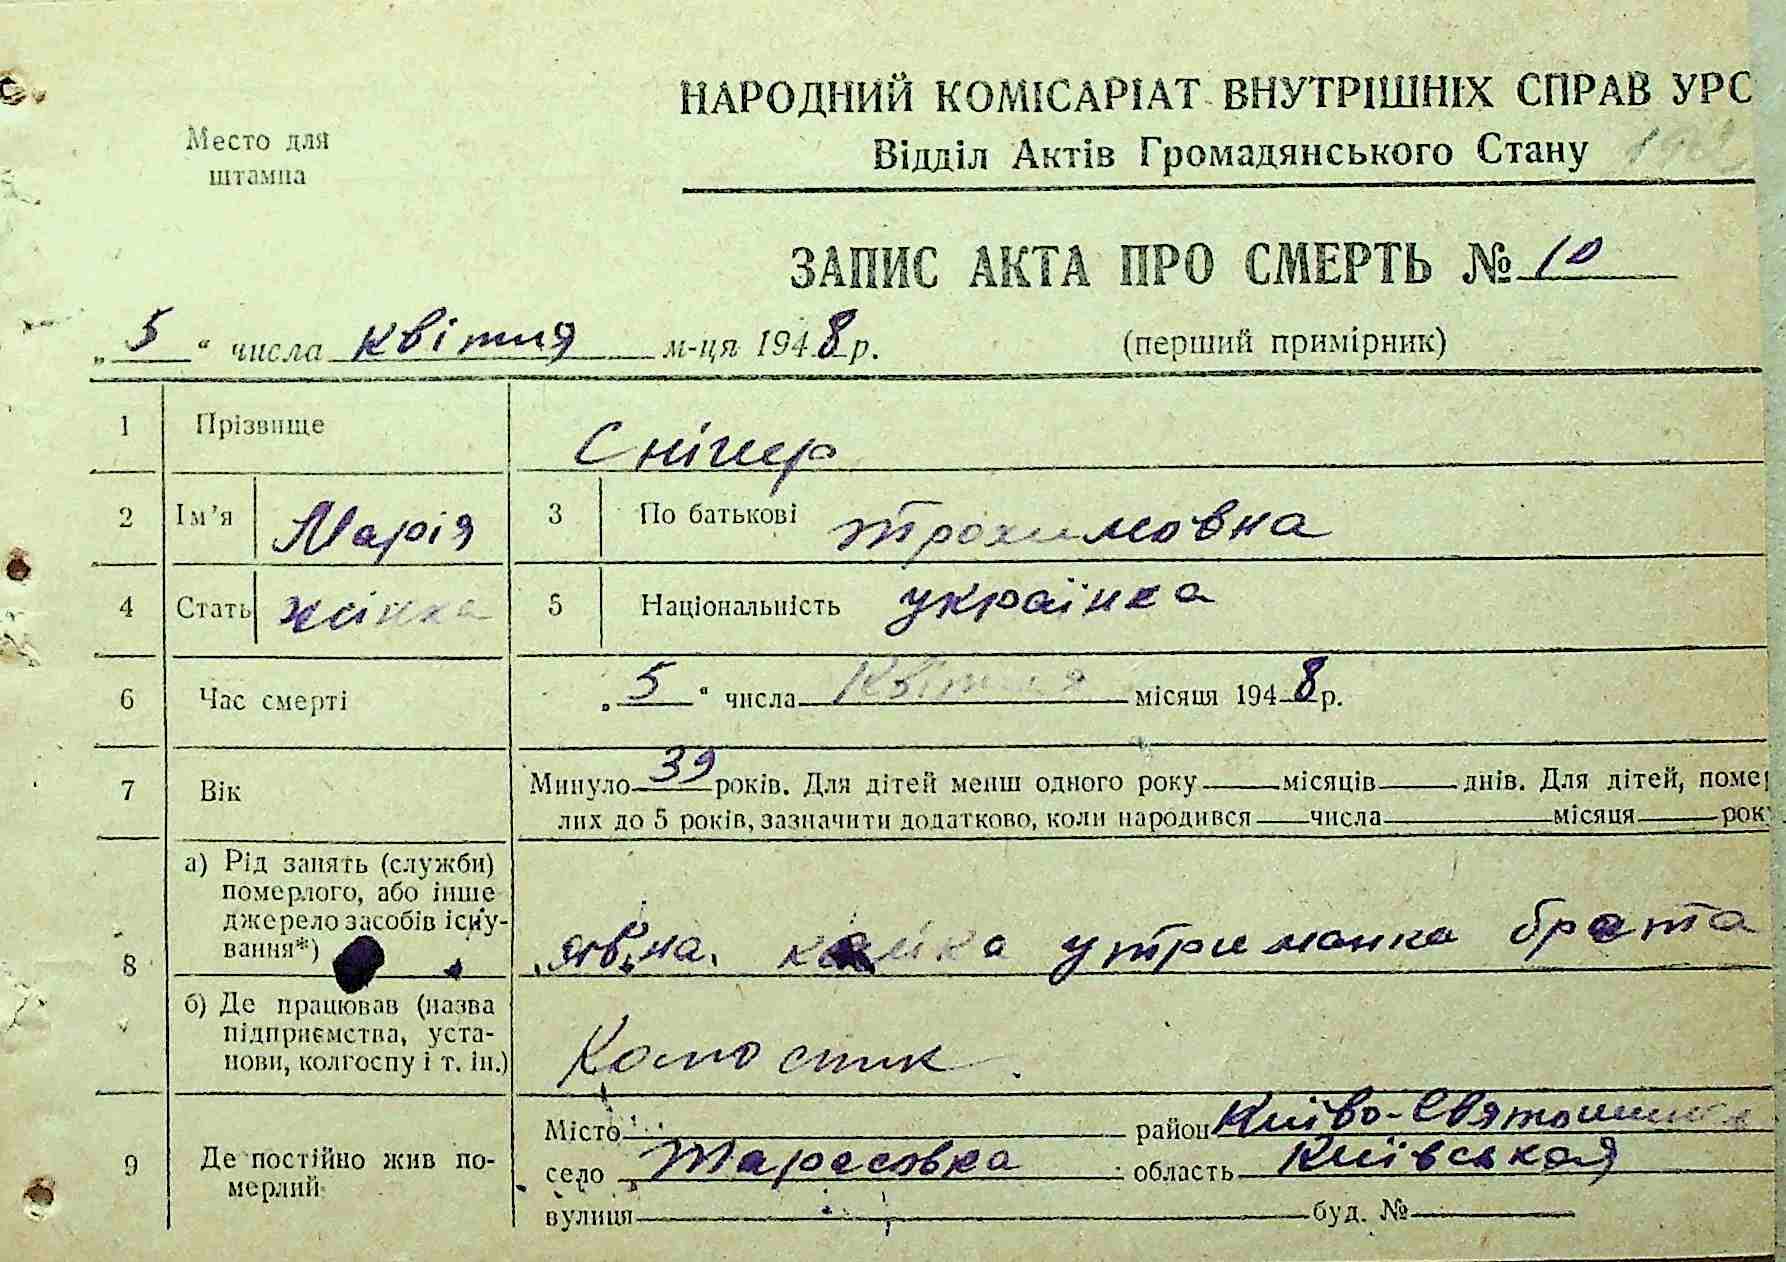 Место для
штампа
НАРОДНИЙ КОМІСАРІАТ ВНУТРІШНІХ СПРАВ УРС
Відділ Актів Громадянського Стану
ЗАПИС АКТА ПРО СМЕРТЬ № 10
„5" числа квітня м-ця 1948 р. (перший примірник)
1 Прізвище Снігир
2 Ім'я Марія 3 По батькові Трохимовна
4 Стать жінка 5 Національність українка
6 Час смерті „5" числа Квітня місяця 1948 р.
7 Вік Минуло 39 років. Для дітей менш одного року — місяців — днів. Для дітей, помер
лих до 5 років, зазначити додатково, коли народився — числа — місяця — рок
8 а) Рід занять (служби)
померлого, або інше
джерело засобів існу-
вання*) утриманка брата
б) Де працював (назва
підприємства, уста-
нови, колгоспу і т. ін.)
9 Де постійно жив по-
мерлий
Місто район Київо-Святошинск
село Тарасовка область Київськая
вулиця буд. №